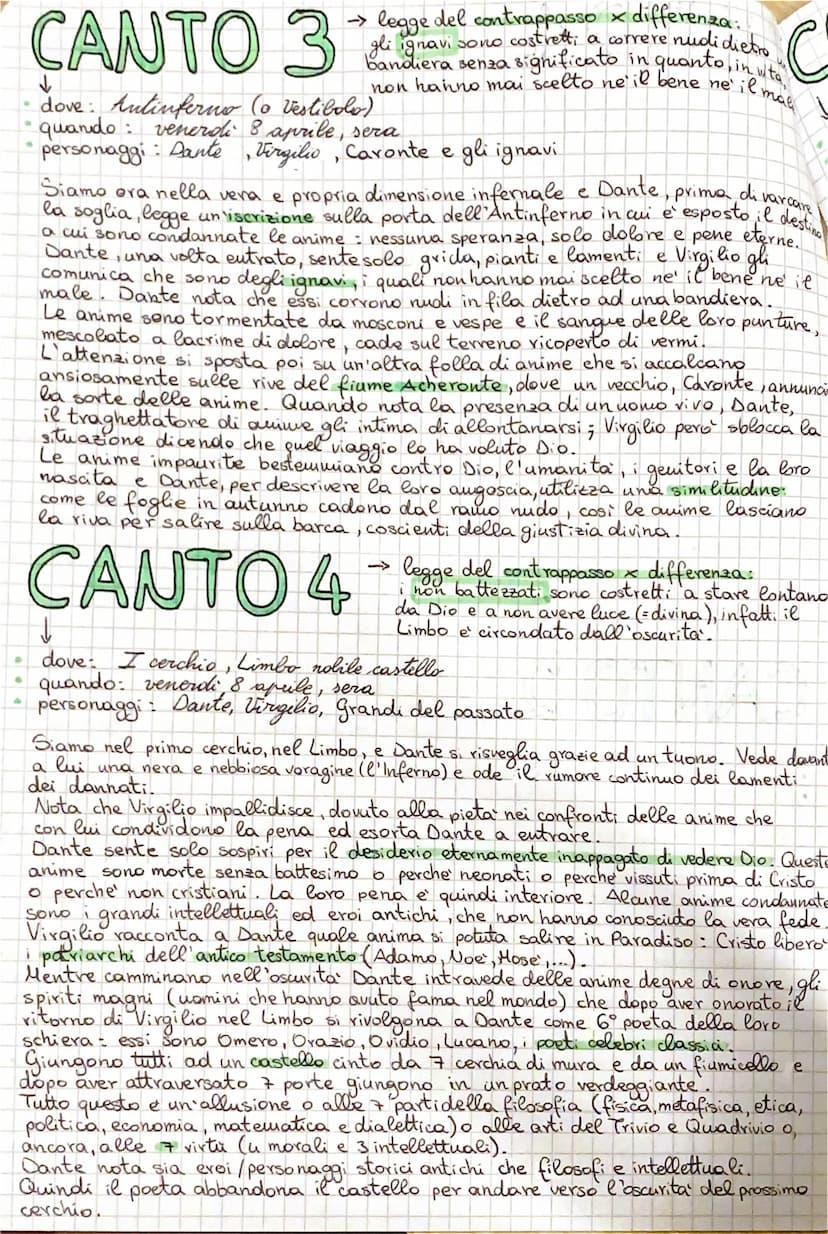 CANTO 3
→ legge del contrappasso x differenza:
gli ignavi sono costretti a correre nudi dietro
bandiera senza significato in quanto, in vita,
non hanno mai scelto ne' il bene ne' il male
↓
dove: Antinferno (o Vestibolo)
quando: venerdì 8 aprile, sera
personaggi: Dante, Virgilio, Caronte e gli ignavi
Siamo ora nella vera e propria dimensione infernale e Dante, prima di varcare
la soglia, legge un'iscrizione sulla porta dell'Antinferno in cui e' esposto il destino
a cui sono condannate le anime: nessuna speranza, solo dolore e pene eterne.
Dante, una volta entrato, sente solo grida, pianti e lamenti e Virgilio gli
comunica che sono degli ignavi, i quali non hanno mai scelto ne' il bene ne' il
male. Dante nota che essi corrono nudi in fila dietro ad una bandiera.
Le anime sono tormentate da mosconi e vespe e il sangue delle loro punture,
mescolato a lacrime di dolore, cade sul terreno ricoperto di vermi.
L'attenzione si sposta poi su un'altra folla di anime che si accalcano
ansiosamente sulle rive del fiume Acheronte, dove un vecchio, Caronte, annuncia
la sorte delle anime. Quando nota la presenza di un uomo vivo, Dante,
il traghettatore di anime gli intima di allontanarsi; Virgilio pero' sblocca la
situazione dicendo che quel viaggio lo ha voluto Dio.
Le anime impaurite bestemmiano contro Dio, l'umanita', i genitori e la loro
nascita e Dante, per descrivere la loro angoscia, utilizza una similitudine:
come le foglie in autunno cadono dal ramo nudo, così le anime lasciano
la riva per salire sulla barca, coscienti della giustizia divina.
CANTO 4
→ legge del contrappasso x differenza:
i non battezzati sono costretti a stare lontano
da Dio e a non avere luce (= divina), infatti il
Limbo e' circondato dall'oscurita'.
↓
dove: I cerchio, Limbo nobile castello
quando: venerdì 8 aprile, sera
personaggi: Dante, Virgilio, Grandi del passato
Siamo nel primo cerchio, nel Limbo, e Dante si risveglia grazie ad un tuono. Vede davanti
a lui una nera e nebbiosa voragine (l'Inferno) e ode il rumore continuo dei lamenti
dei dannati.
Nota che Virgilio impallidisce, dovuto alla pieta' nei confronti delle anime che
con lui condividono la pena ed esorta Dante a entrare.
Dante sente solo sospiri per il desiderio eternamente inappagato di vedere Dio. Queste
anime sono morte senza battesimo o perche' neonati o perche' vissuti prima di Cristo
o perche' non cristiani. La loro pena e' quindi interiore. Alcune anime condannate
sono i grandi intellettuali ed eroi antichi, che non hanno conosciuto la vera fede.
Virgilio racconta a Dante quale anima si potuta salire in Paradiso: Cristo libero'
i patriarchi dell'antico testamento (Adamo, Noe', Mose',...).
Mentre camminano nell'oscurita' Dante intravede delle anime degne di onore, gli
spiriti magni (uomini che hanno avuto fama nel mondo) che dopo aver onorato il
ritorno di Virgilio nel Limbo si rivolgono a Dante come 6° poeta della loro
schiera: essi sono Omero, Orazio, Ovidio, Lucano, i poeti celebri classici.
Giungono tutti ad un castello cinto da 7 cerchia di mura e da un fiumicello e
dopo aver attraversato 7 porte giungono in un prato verdeggiante.
Tutto questo e' un'allusione o alle 7 parti della filosofia (fisica, metafisica, etica,
politica, economia, matematica e dialettica) o alle arti del Trivio e Quadrivio o,
ancora, alle 7 virtù (4 morali e 3 intellettuali).
Dante nota sia eroi/personaggi storici antichi che filosofi e intellettuali.
Quindi il poeta abbandona il castello per andare verso l'oscurita' del prossimo
cerchio.